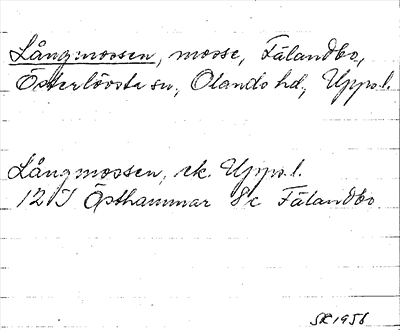 Långmossen, mosse, Fälandbo,
Österlövsta sn, Olands hd, Upps.l.
Långmossen, ek. Upps.l.
12 I Östhammar 8c Fälandbo.
SR 1956